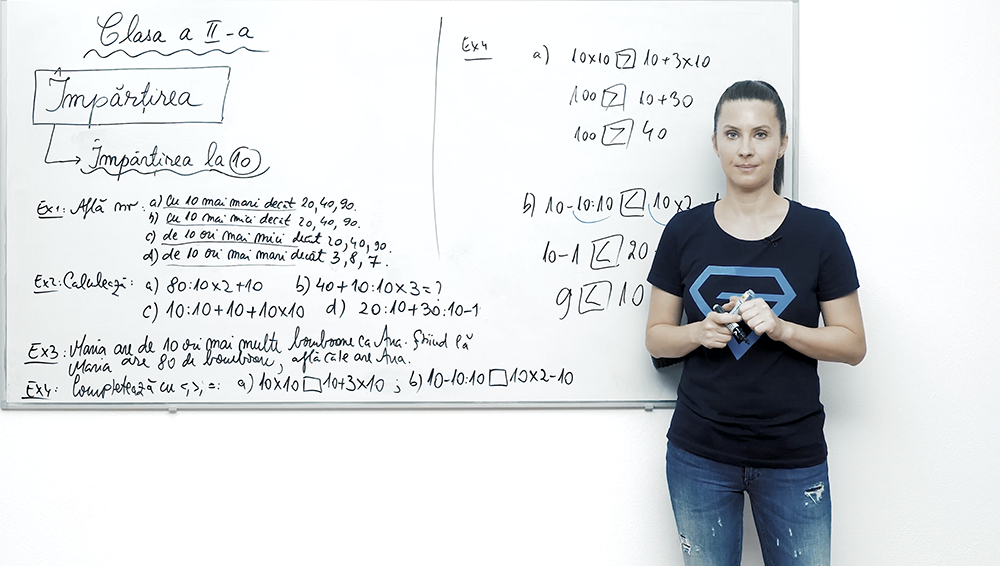 Clasa a II-a
Împărțirea
Împărțirea la 10
Ex1: Află nr: a) cu 10 mai mari decât 20,40,90.
b) cu 10 mai mici decât 20,40,90.
c) de 10 ori mai mici decât 20,40,90.
d) de 10 ori mai mari decât 3,8,7.
Ex2: Calculează: a) 80:10x2+10 b) 40+10:10x3=?
c) 10:10+10+10x10 d) 20:10+30:10-1
Ex3: Maria are de 10 ori mai multe bomboane ca Ana. Știind că
Maria are 80 de bomboane, află câte are Ana.
Ex4: Completează cu <,>,=: a) 10x10 □ 10+3x10 ; b) 10-10:10 □ 10x2-10
Ex4 a) 10x10 > 10+3x10
100 > 10+30
100 > 40
b) 10-10:10 < 10x2
10-1 < 20
9 < 10